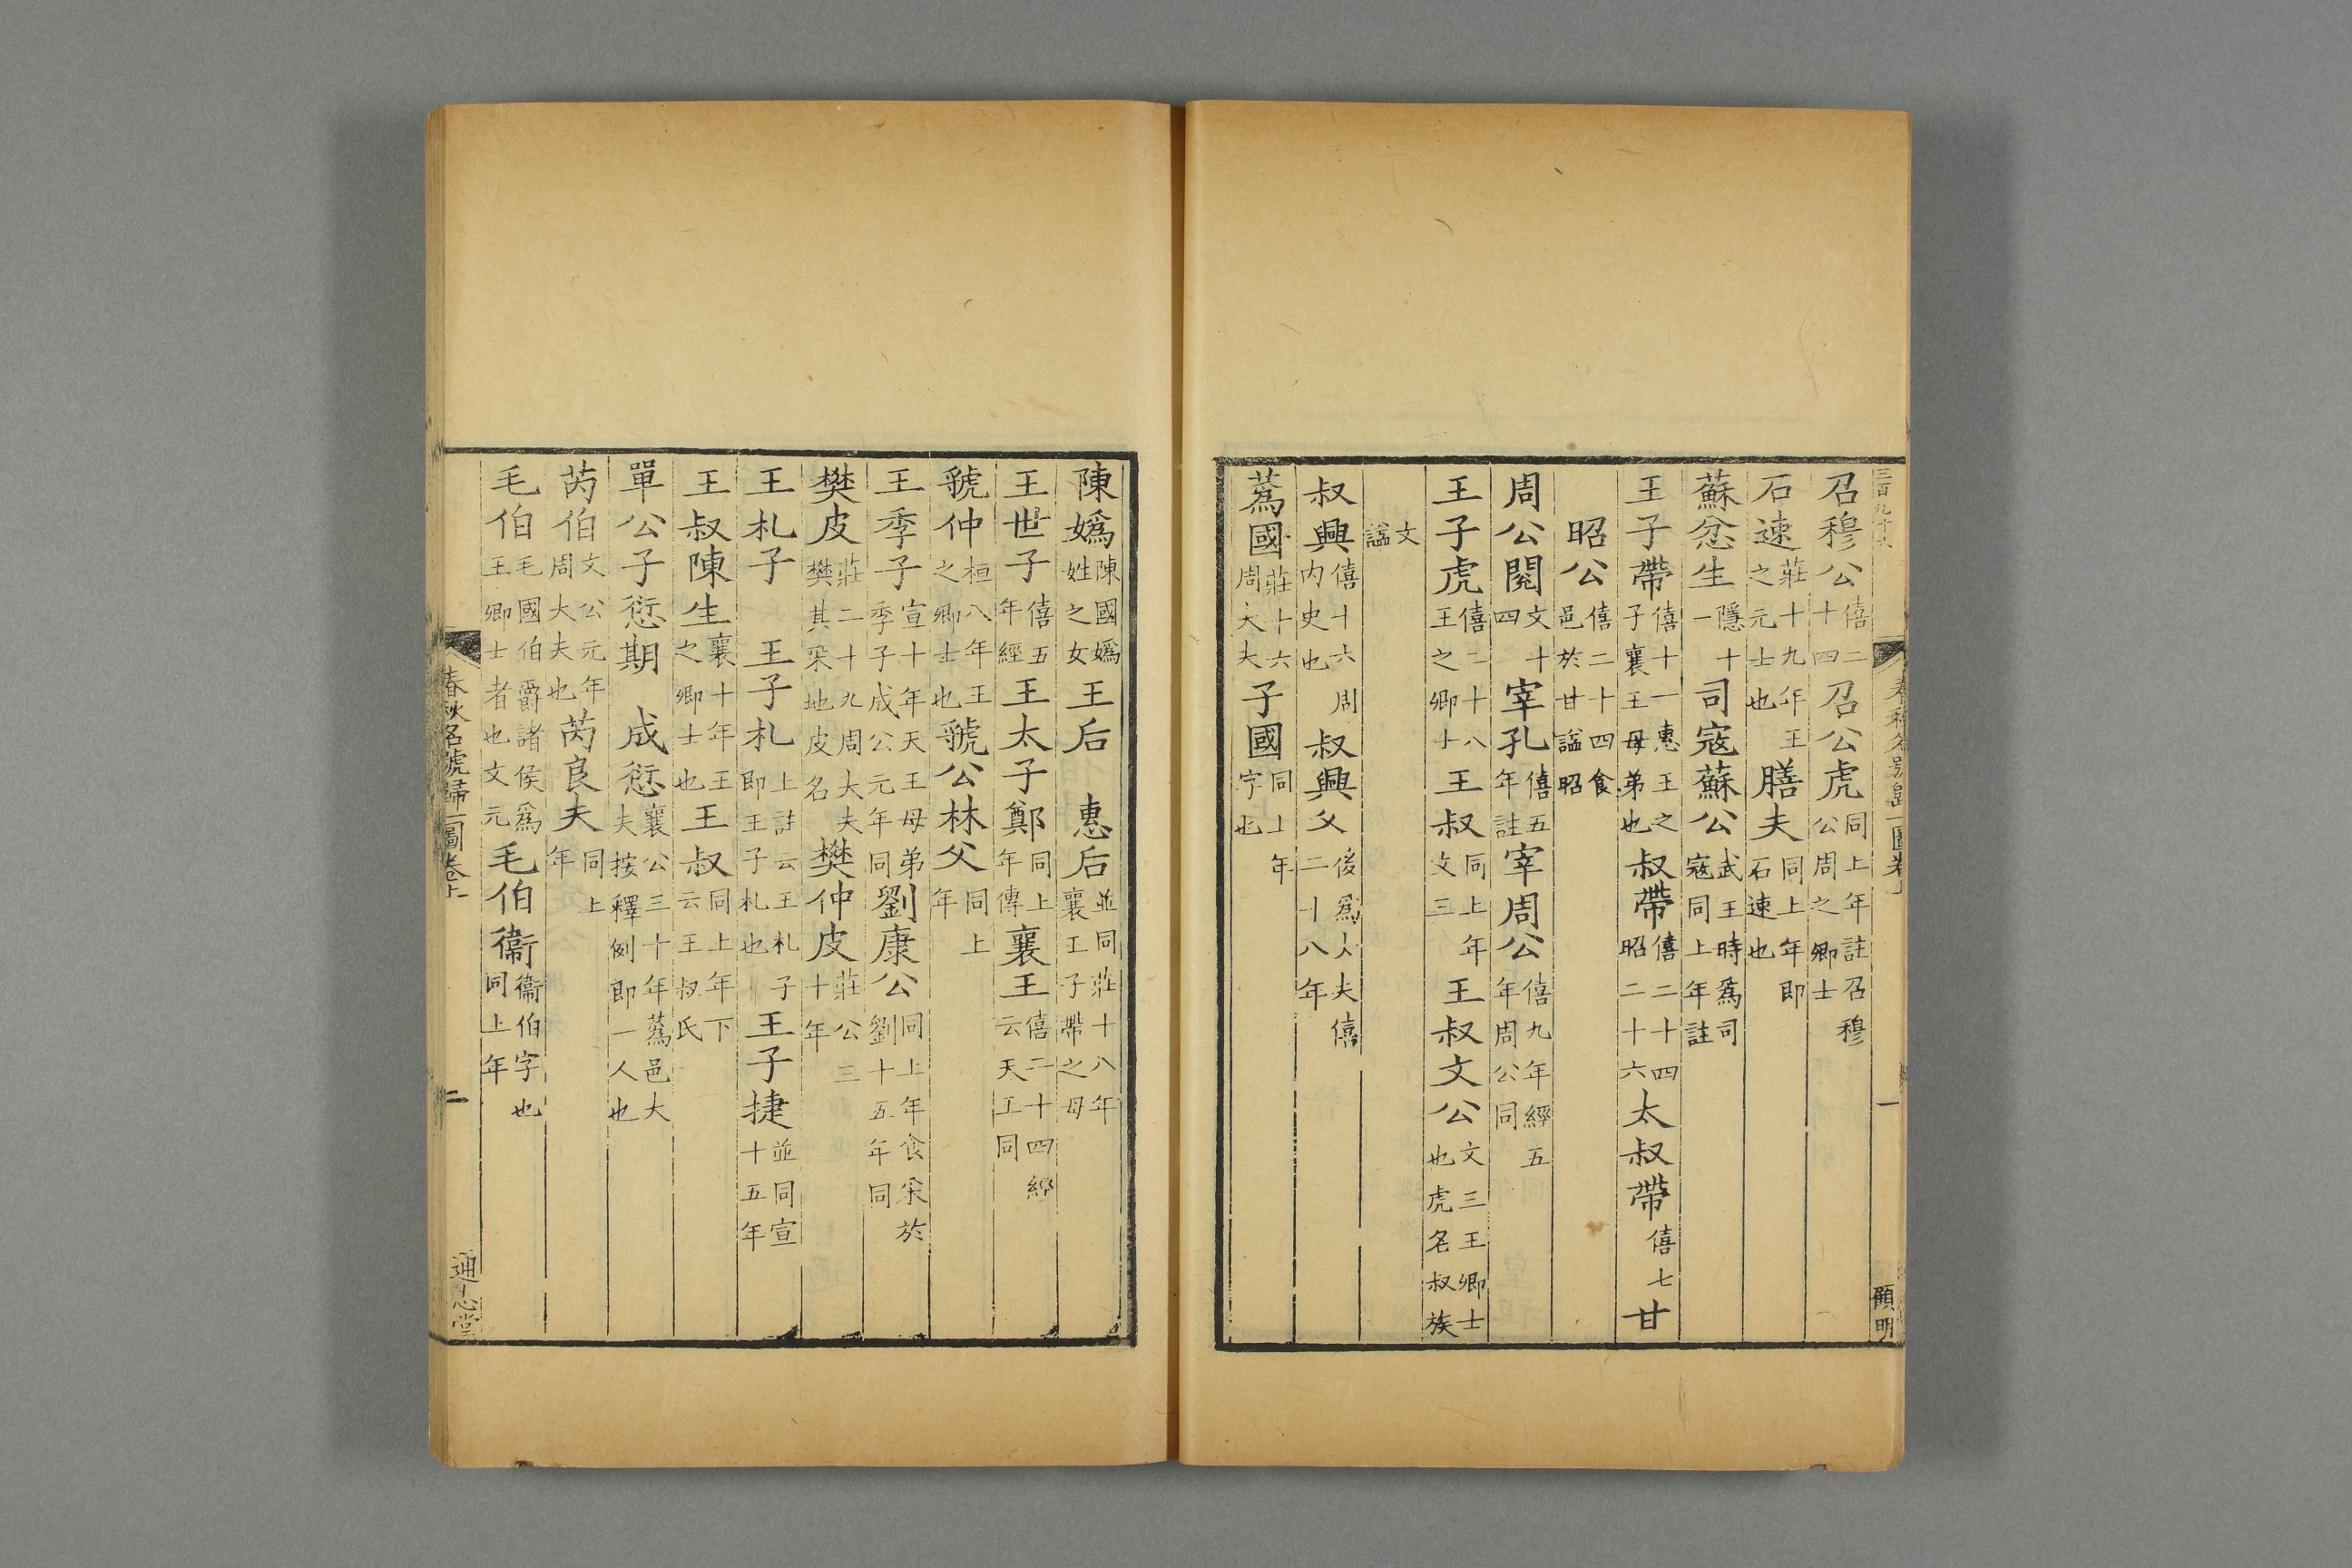 三百九十六
春秋名號歸一圖卷上
一
顧明
召穆公僖二十四召公虎同上年註召穆公周之卿士
石速莊十九年王之元士也膳夫同上年即石速也
蘇忿生隱十一司寇蘇公武王時爲司寇同上年註
王子帶僖十一惠王之子襄王母弟也叔帶僖二十四昭二十六太叔帶僖七甘
昭公僖二十四食邑於甘諡昭
周公閱文十四宰孔僖五年註宰周公僖九年經五年周公同
王子虎僖二十八王之卿士王叔同上年文三王叔文公文三王卿士也虎名叔族
文諡
叔興僖十六周内史也叔興父後爲人夫僖二十八年
蒍國莊十六周大夫子國同上年字也
陳嬀陳國嬀姓之女王后 惠后並同莊十八年襄王子帶之母
王世子僖五年經王太子鄭同上年傳襄王僖二十四經云天王同
虢仲桓八年王之卿士也虢公林父同上年
王季子宣十年天王母弟季子成公元年同劉康公同上年食采於劉十五年同
樊皮莊二十九周大夫樊其采地皮名樊仲皮莊公三十年
王札子 王子札上註云王札子即王子札也王子捷並同宣十五年
王叔陳生襄十年王之卿士也王叔同上年下云王叔氏
單公子愆期 成愆襄公三十年蒍邑大夫按釋例即一人也
芮伯文公元年周大夫也芮良夫同上年
毛伯毛國伯爵諸侯爲王卿士者也文元毛伯衞衞伯字也同上年
春秋名號歸一圖卷上
二
通志堂